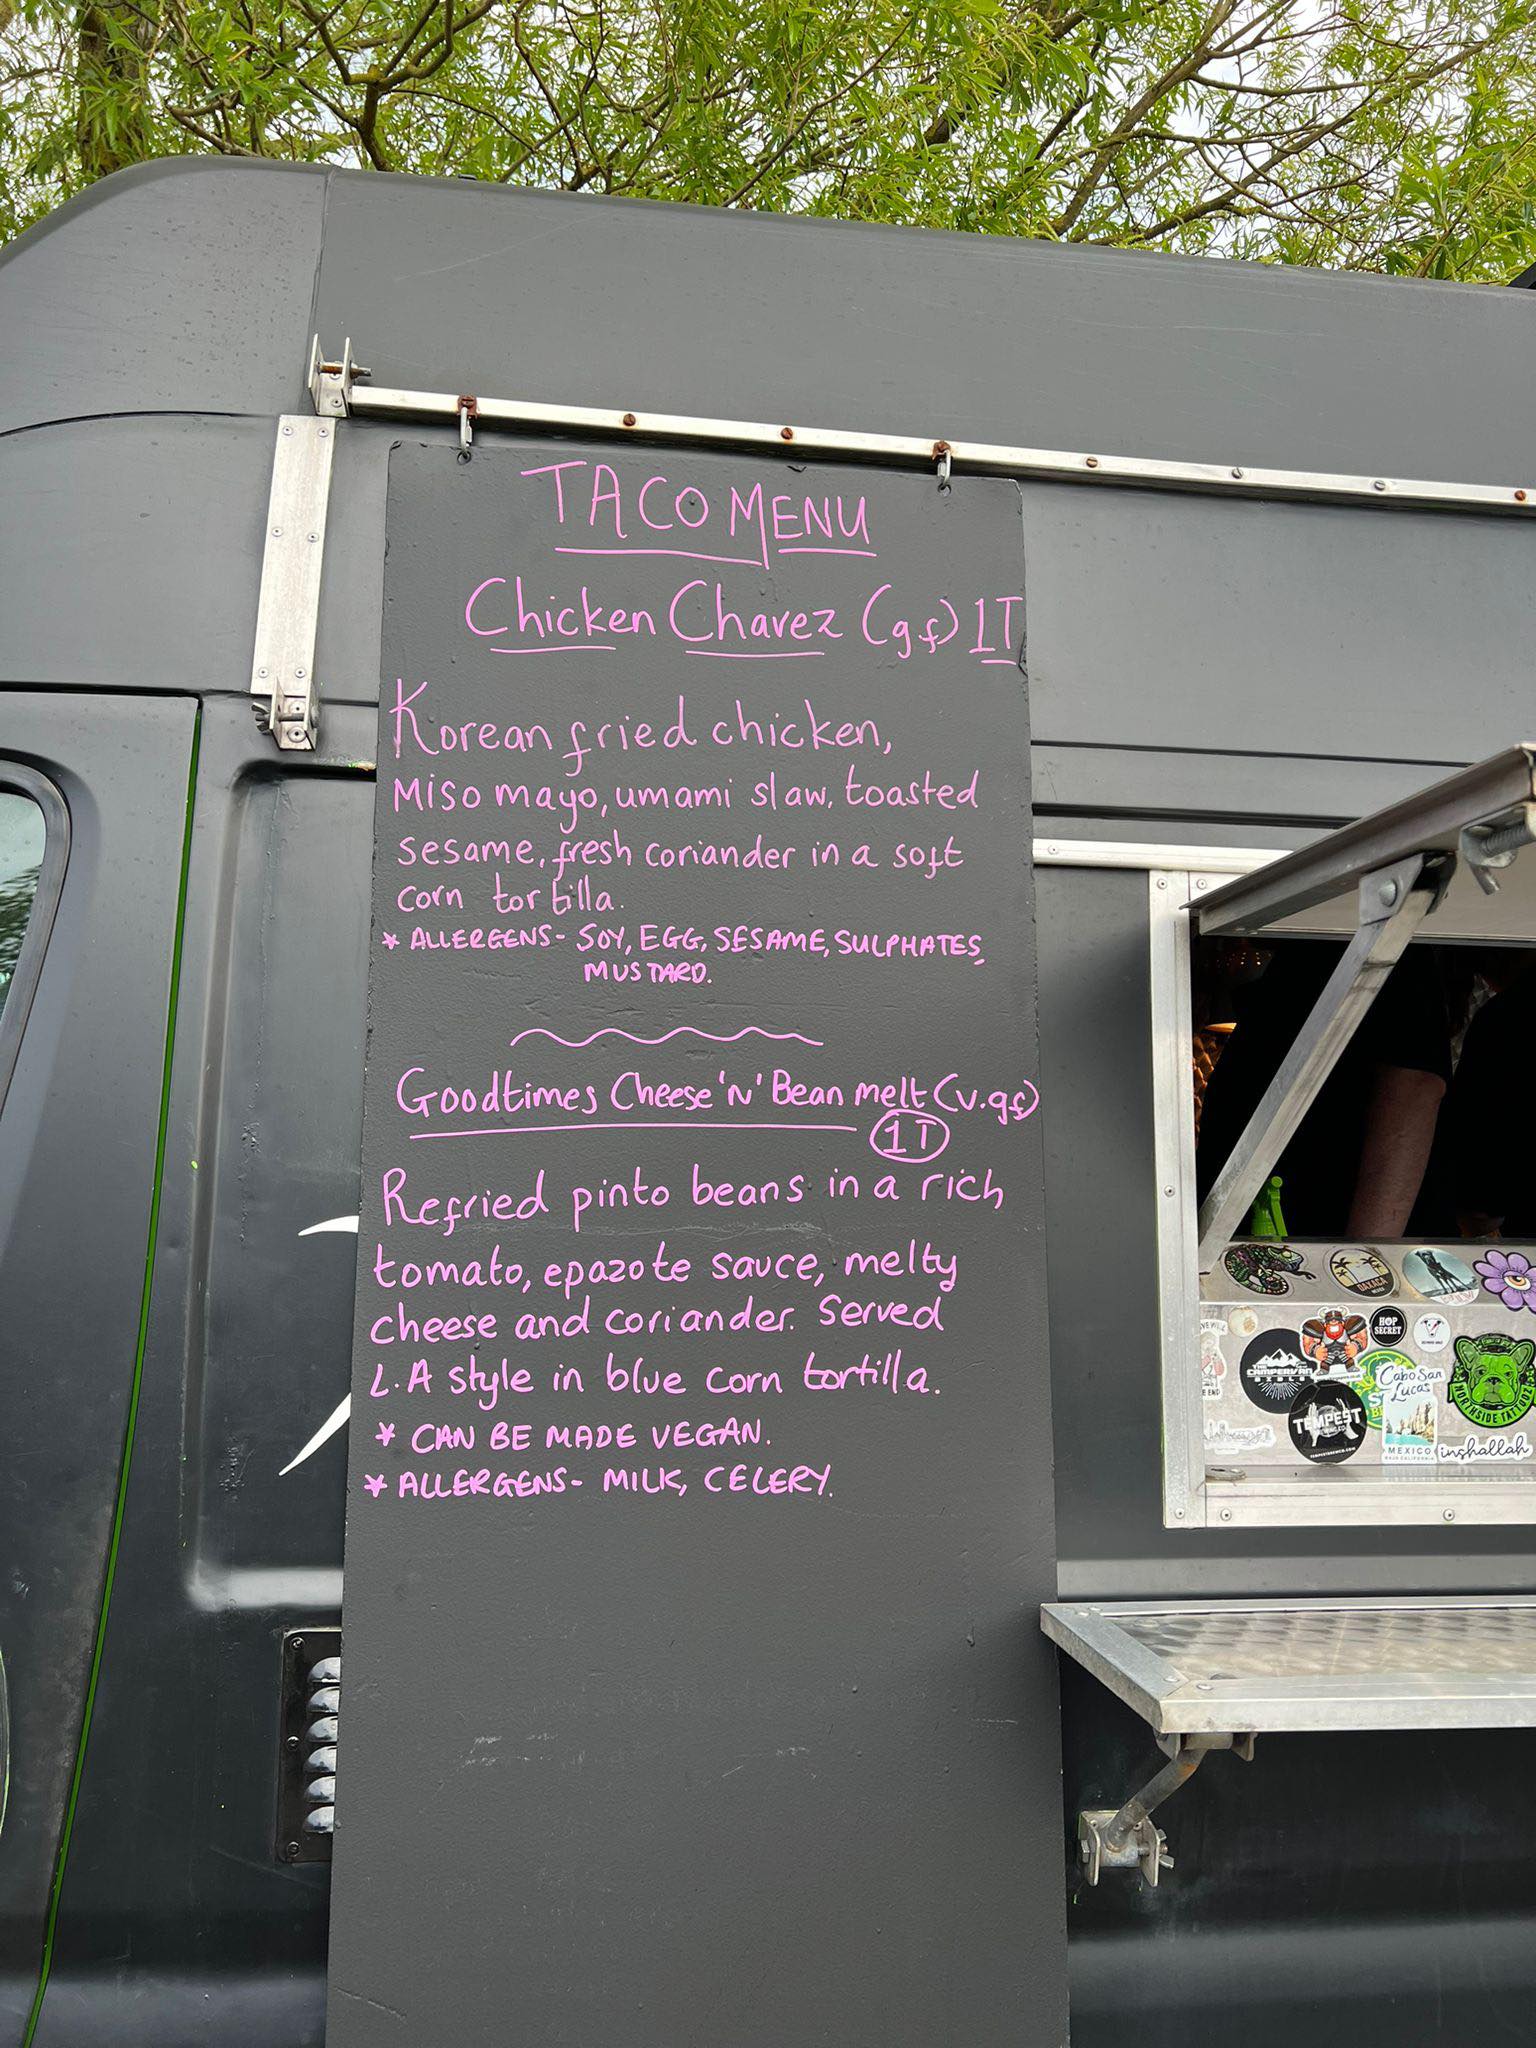 TACO MENU
Chicken Chavez (gf) 1T
Korean fried chicken,
Miso mayo, umami slaw, toasted
sesame, fresh coriander in a soft
corn tortilla.
* ALLERGENS- SOY, EGG, SESAME, SULPHATES,
MUSTARD.
Goodtimes Cheese 'N' Bean melt (v.gf)
1T
Refried pinto beans in a rich
tomato, epazote sauce, melty
cheese and coriander. Served
L.A style in blue corn tortilla.
* CAN BE MADE VEGAN.
* ALLERGENS- MILK, CELERY.
OAXACA
HOP
SECRET
THE
CAMPERVAN
BIBLE
Cabo San
Lucas
MEXICO
BAJA CALIFORNIA
TEMPEST
NORTHSIDE TATTOOZ
inshallah